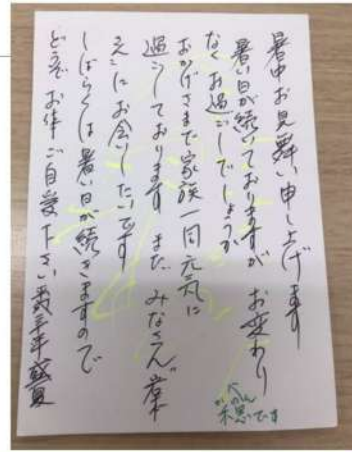 暑中お見舞い申し上げます
暑い日が続いておりますが お変わり
なくお過ごしでしょうか
おかげさまで家族一同元気に
過ごしております また みなさん
にお会いしたいです
しばらくは暑い日が続きますので
どうぞ お体ご自愛下さい 盛夏
です